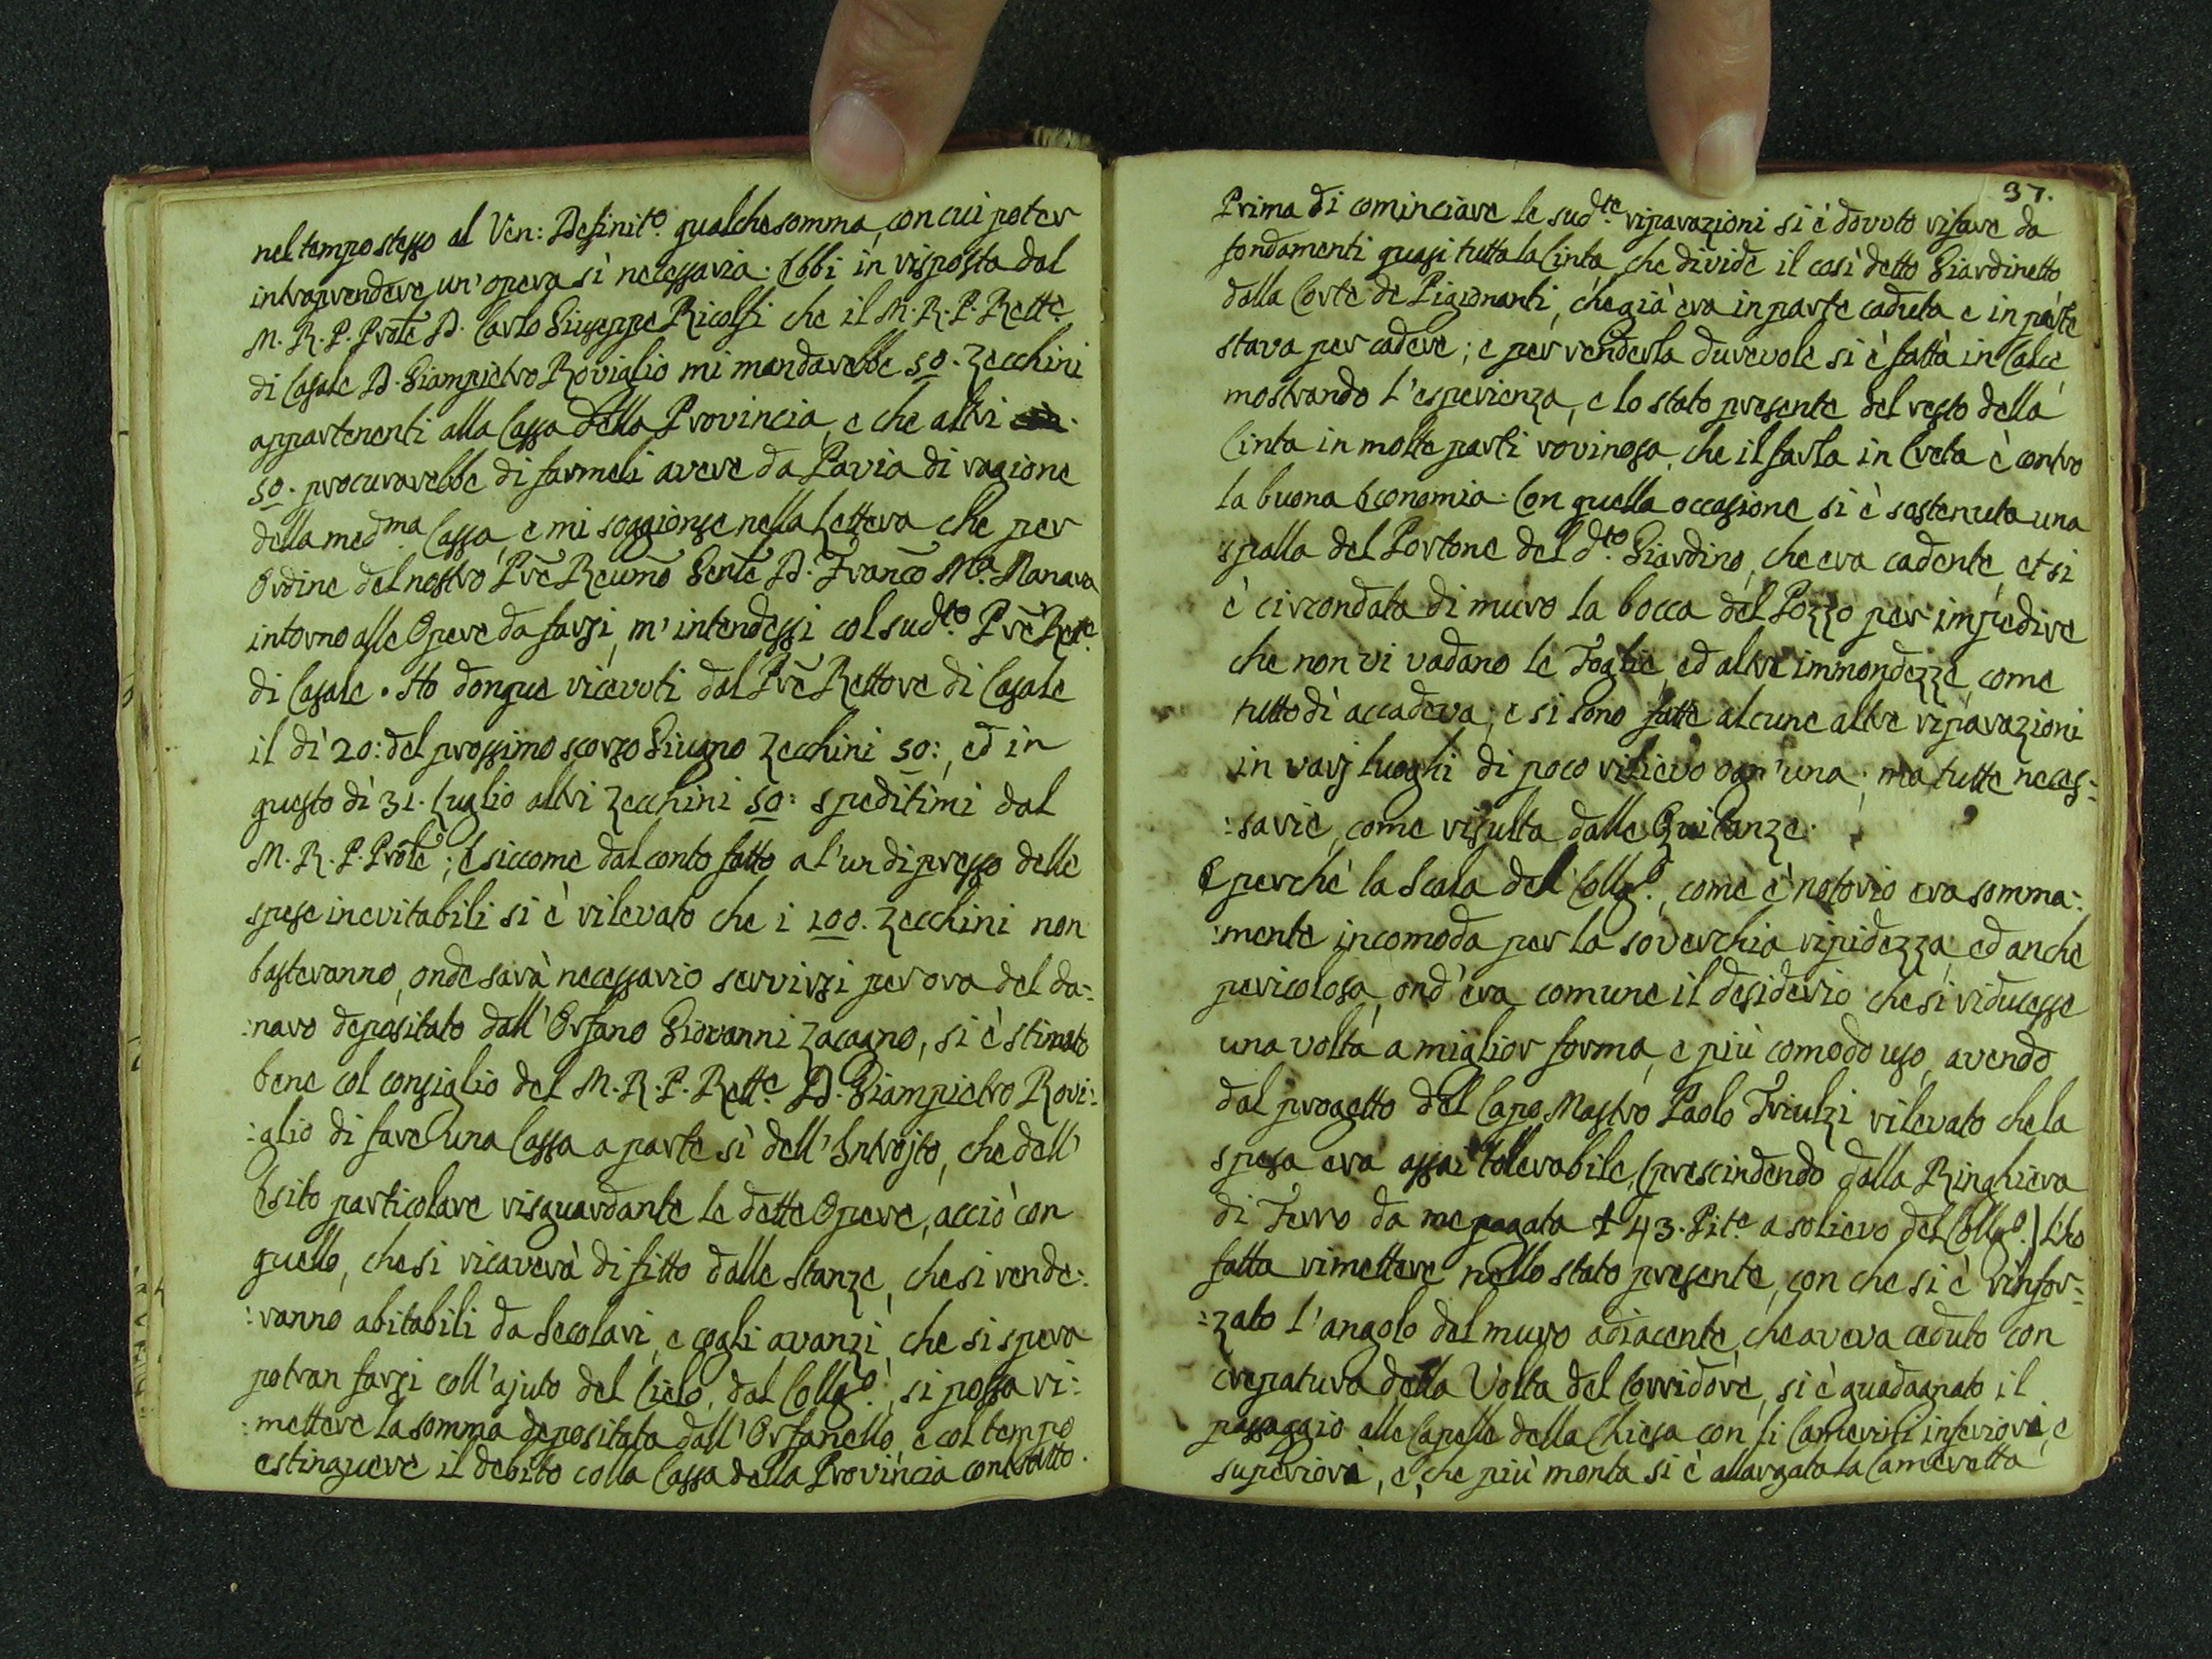 nel tempo stesso al Ven: Definit.o qualche somma, con cui poter
intraprendere un'opera sì necessaria. Ebbi in risposta dal
M. R. P. Prõle D. Carlo Giuseppe Ricolfi che il M. R. P. Rett.e
di Casale D. Giampietro Roviglio mi mandarebbe 50. Zecchini
appartenenti alla Cassa della Provincia, e che altri
50. procurarebbe di farmeli avere da Pavia di ragione
della med.ma Cassa, e mi soggionse nella Lettera che per
Ordine del nostro Prẽ Reũmo Genle D. Franc̃o M.a Manara
intorno alle Opere da farsi, m'intendessi col sud.to Prẽ Rett.e
di Casale. Ho donque ricevuti dal Prẽ Rettore di Casale
il dì 20: del prossimo scorso Giugno Zecchini 50:, ed in
questo dì 31. Luglio altri Zecchini 50: speditimi dal
M. R. P. Prõle; E siccome dal conto fatto a l'un di presso delle
spese inevitabili si è rilevato che i 100. Zecchini non
basteranno, onde sarà necessario servirsi per ora del da=
:naro depositato dall'Orfano Giovanni Zacagno, si è stimato
bene col consiglio del M. R. P. Rett.e D. Giampietro Rovi:
:glio di fare una Cassa a parte sì dell'Introjto, che dell'
Esito particolare risguardante le dette Opere, acciò con
quello, che si ricaverà di fitto dalle stanze, che si rende:
:ranno abitabili da Secolari, e cogli avanzi, che si spera
potran farsi coll'ajuto del Cielo, dal Coll.o, si possa ri:
:mettere la somma depositata dall'Orfanello, e col tempo
estinguere il debito colla Cassa della Provincia contratto.
37.
Prima di cominciare le sud.te riparazioni si è dovuto rifare da
fondamenti quasi tutta la Cinta, che divide il così detto Giardinetto
dalla Corte de Pigionanti, che già era in parte caduta e in parte
stava per cadere; e per renderla durevole si è fatta in Calce,
mostrando l'esperienza, e lo stato presente del resto della
Cinta in molte parti rovinosa, che il farla in Creta è contro
la buona Economia. Con quella occasione si è sostenuta una
spalla del Portone del d.to Giardino, che era cadente, et si
è circondata di muro la bocca del Pozzo per impedire
che non vi vadano le Foglie, ed altre immondezze, come
tutto dì accadeva; e si sono fatte alcune altre riparazioni
in varj luoghi di poco rilievo ogn'una, ma tutte neces=
:sarie, come risulta dalle Quitanze.
E perchè la Scala del Coll.o, come è notorio era somma:
:mente incomoda per la soverchia ripidezza, ed anche
pericolosa, ond'era comune il desiderio che si riducesse
una volta a miglior forma, e più comodo uso, avendo
dal progetto del Capo Mastro Paolo Triulzi rilevato che la
spesa era assai tollerabile, (prescindendo dalla Ringhiera
di Ferro da me pagata £ 43. Pit.e a solievo del Coll.o) l'ho
fatta rimettere nello stato presente, con che si è rinfor=
:zato l'angolo del muro adiacente, che aveva ceduto con
crepatura della Volta del Corridore, si è guadagnato il
passaggio alle Capelle della Chiesa con li Camerini inferiori, e
superiori, e, che più monta si è allargata la Cameretta